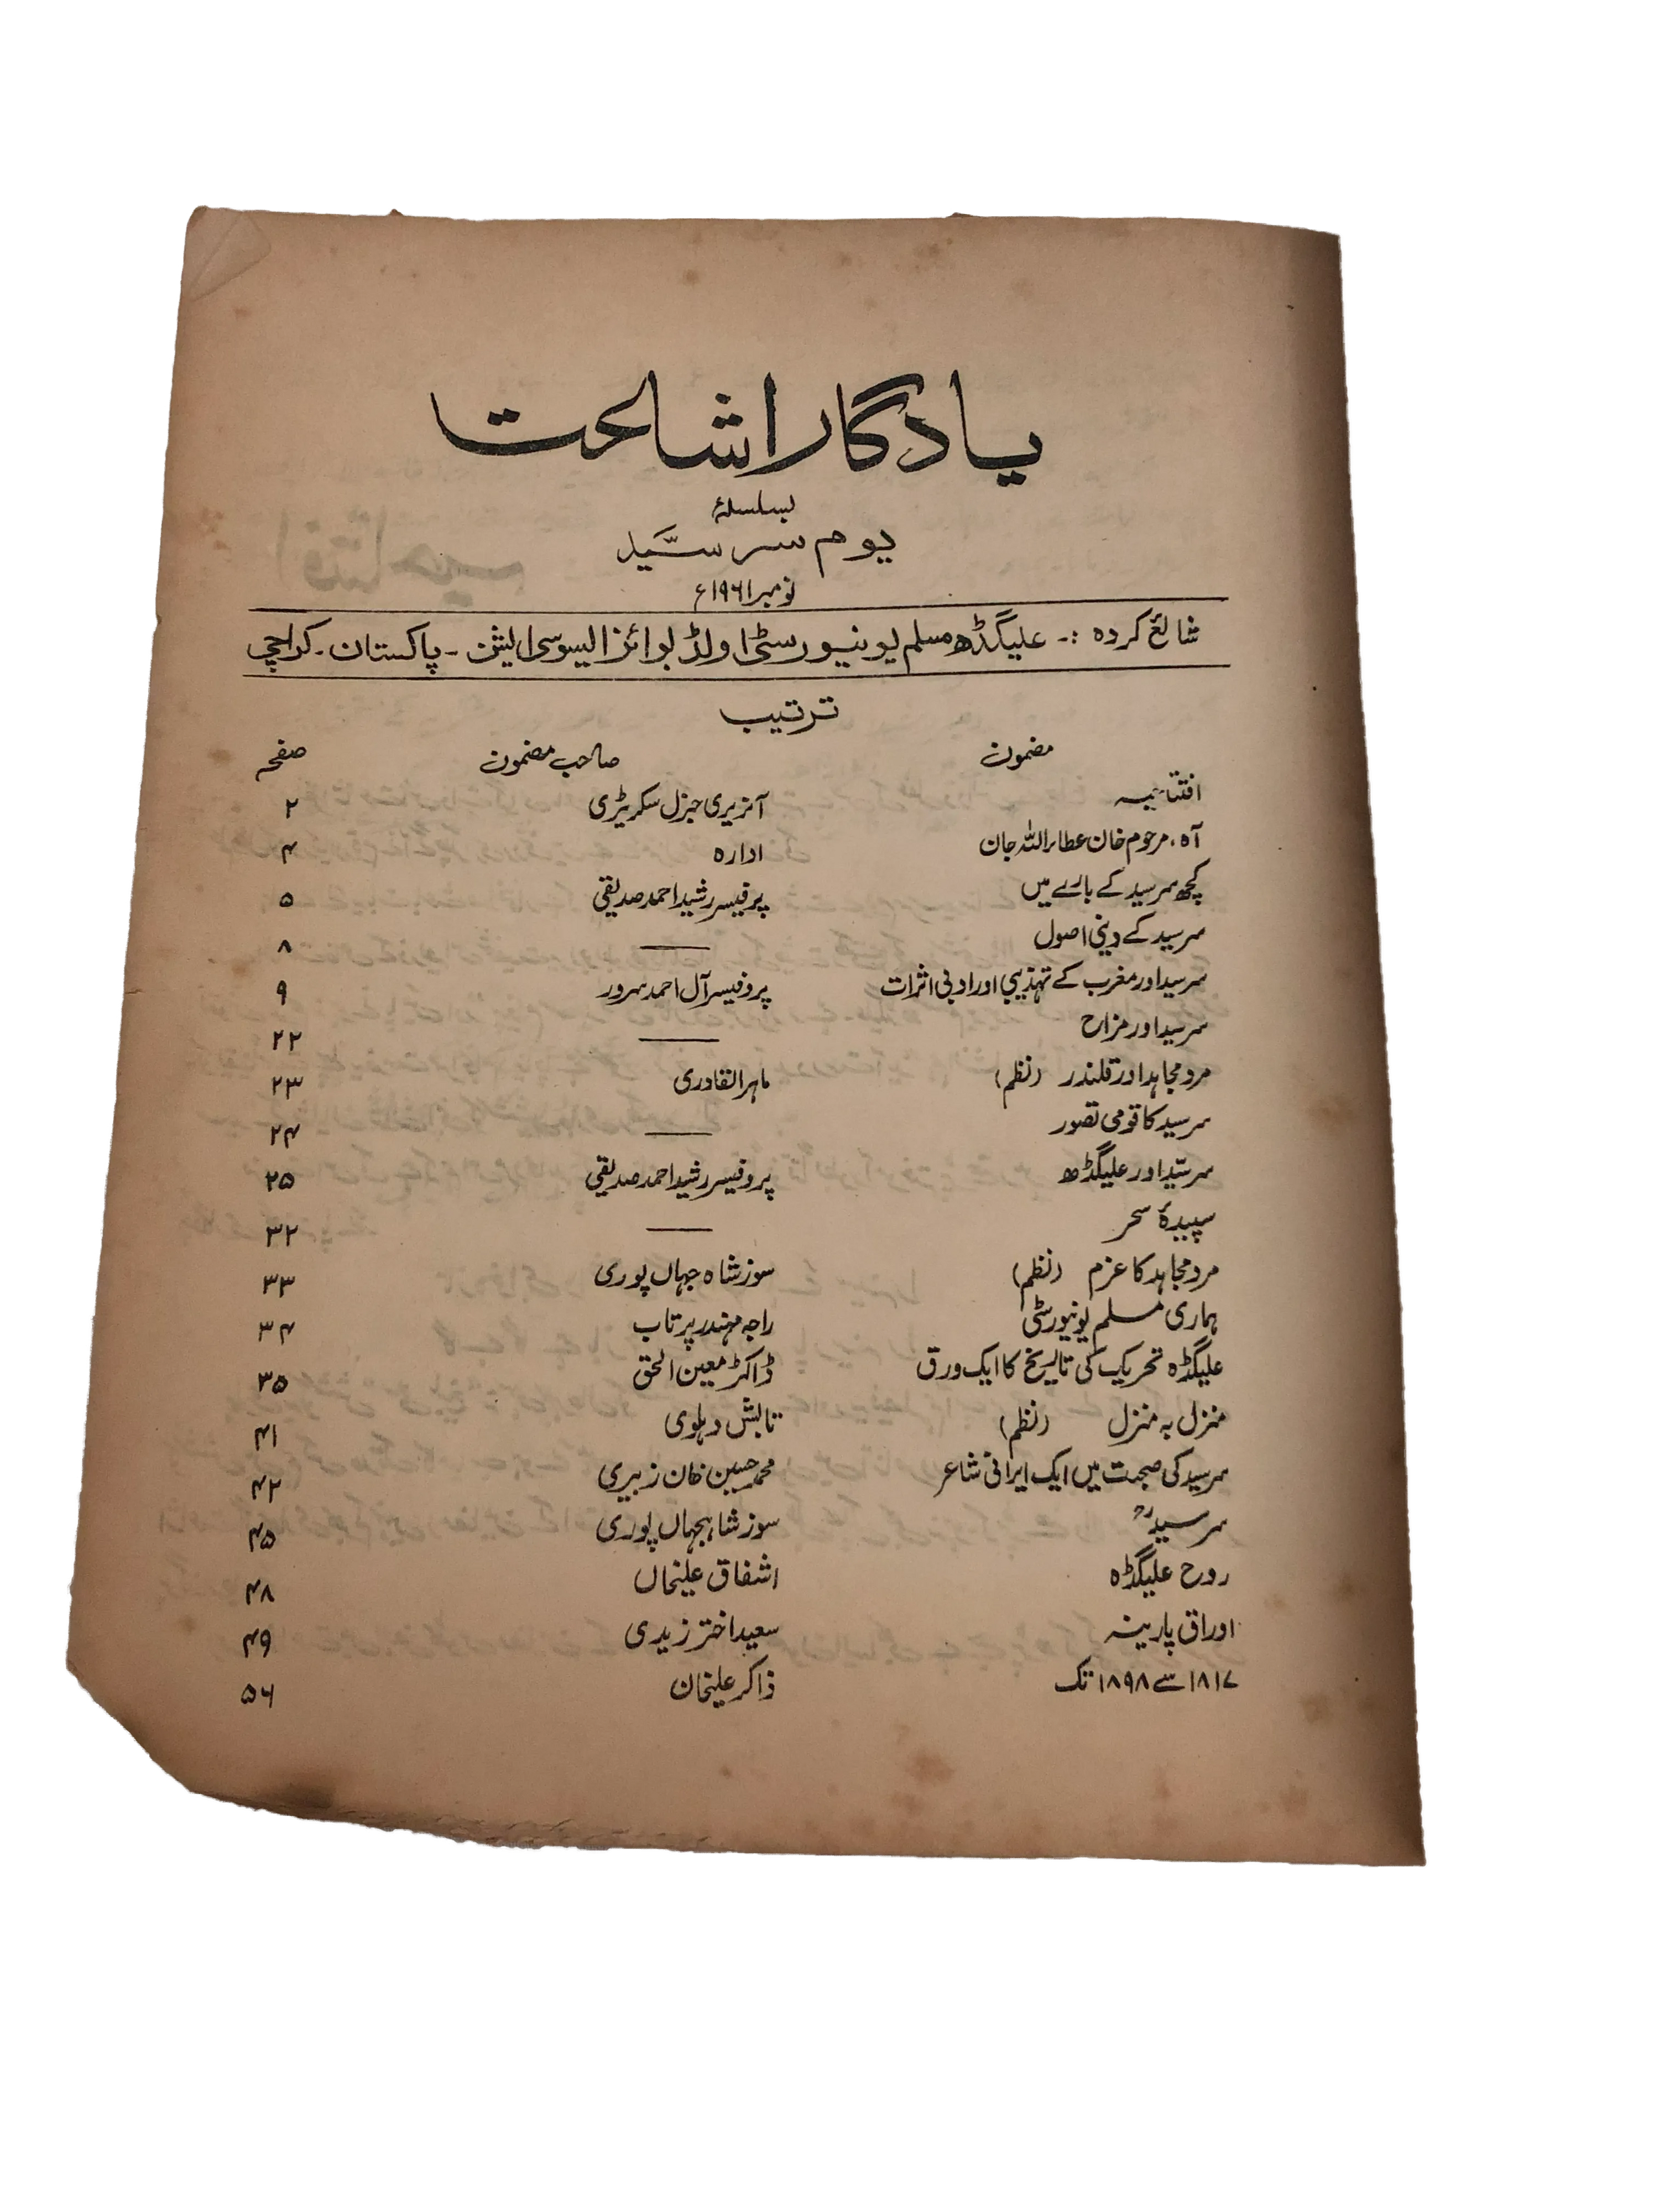 یادگار اشاعت
بسلسلۂ
یوم سر سیّد
نومبر ۱۹۶۱ء
شائع کردہ :۔ علیگڈھ مسلم یونیورسٹی اولڈ بوائز ایسوسی ایشن ۔ پاکستان ۔ کراچی
ترتیب
مضمون صاحب مضمون صفحہ
افتتاحیہ آنریری جنرل سکریٹری ۲
آہ، مرحوم خان عطاء اللہ جان ادارہ ۴
کچھ سرسید کے بارے میں پرفیسر رشید احمد صدیقی ۵
سرسید کے دینی اصول ——— ۸
سرسید اور مغرب کے تہذیبی اور ادبی اثرات پروفیسر آل احمد سرور ۹
سرسید اور مزاح ——— ۲۲
مرد مجاہد اور قلندر (نظم) ماہر القادری ۲۳
سرسید کا قومی تصور ——— ۲۴
سرسیّد اور علیگڈھ پروفیسر رشید احمد صدیقی ۲۵
سپیدۂ سحر ——— ۳۲
مرد مجاہد کا عزم (نظم) سوز شاہ جہاں پوری ۳۳
ہماری مسلم یونیورسٹی راجہ مہندر پرتاب ۳۴
علیگڈہ تحریک کی تاریخ کا ایک ورق ڈاکٹر معین الحق ۳۵
منزل بہ منزل (نظم) تابش دہلوی ۴۱
سرسید کی صحبت میں ایک ایرانی شاعر محمد حسین خان زبیری ۴۲
سرسیدؒ سوز شاہجہاں پوری ۴۵
روح علیگڈہ اشفاق علیخاں ۴۸
اوراق پارینہ سعید اختر زیدی ۴۹
۱۸۱۷ سے ۱۸۹۸ تک ذاکر علیخان ۵۶